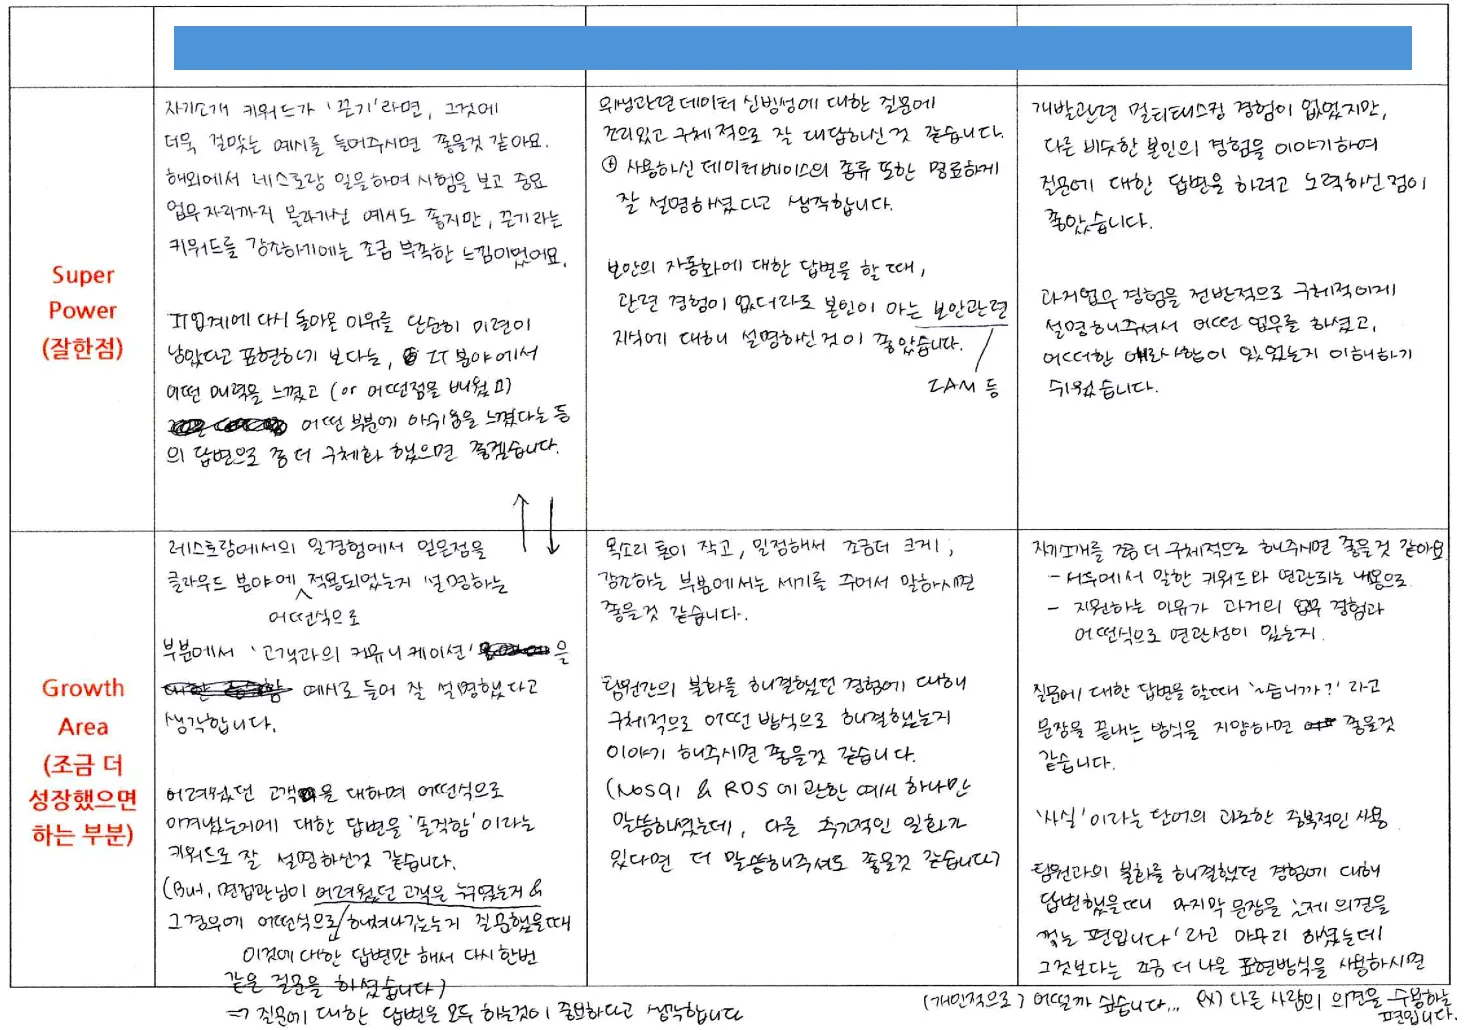 Super
Power
(잘한점)
자기소개 키워드가 '끈기'라면, 그것에
더욱 걸맞는 예시를 들어주시면 좋을것 같아요.
해외에서 레스토랑 일을하며 시험을 보고 중요
업무자리까지 올라가신 예시도 좋지만, 끈기라는
키워드를 강조하기에는 조금 부족한 느낌이었어요.
IT업계에 다시 돌아온 이유를 단순히 미련이
남았다고 표현하기 보다는, IT 분야에서
어떤 매력을 느꼈고 (or 어떤점을 배웠고)
어떤 부분에 아쉬움을 느꼈다는 등
의 답변으로 좀 더 구체화 했으면 좋겠습니다.
위성관련 데이터 신빙성에 대한 질문에
조리있고 구체적으로 잘 대답하신것 같습니다.
⊕ 사용하신 데이터베이스의 종류 또한 명료하게
잘 설명하셨다고 생각합니다.
보안의 자동화에 대한 답변을 할때,
관련 경험이 없더라도 본인이 아는 보안관련
지식에 대해 설명하신것이 좋았습니다.
IAM 등
개발관련 멀티태스킹 경험이 없었지만,
다른 비슷한 본인의 경험을 이야기하여
질문에 대한 답변을 하려고 노력하신점이
좋았습니다.
과거업무 경험을 전반적으로 구체적이게
설명해주셔서 어떤 업무를 하셨고,
어떠한 애로사항이 있었는지 이해하기
쉬웠습니다.
Growth
Area
(조금 더
성장했으면
하는 부분)
레스토랑에서의 일경험에서 얻은점을
클라우드 분야에 적용되었는지 설명하는
어떤식으로
부분에서 '고객과의 커뮤니케이션' 을
예시로 들어 잘 설명했다고
생각합니다.
어려웠던 고객을 대하며 어떤식으로
이겨냈는지에 대한 답변을 '솔직함' 이라는
키워드로 잘 설명하신것 같습니다.
(But, 면접관님이 어려웠던 고객은 누구였는지 &
그경우에 어떤식으로 헤쳐나갔는지 질문했을때
이것에 대한 답변만 해서 다시한번
같은 질문을 하셨습니다)
⇒ 질문에 대한 답변을 모두 하는것이 중요하다고 생각합니다
목소리 톤이 작고, 일정해서 조금더 크게,
강조하는 부분에서는 세기를 주어서 말하시면
좋을것 같습니다.
팀원간의 불화를 해결했던 경험에 대해
구체적으로 어떤 방식으로 해결했는지
이야기 해주시면 좋을것 같습니다.
(NoSql & RDS 에 관한 예시 하나만
말씀하셨는데, 다른 추가적인 일화가
있다면 더 말씀해주셔도 좋을것 같습니다)
자기소개를 좀 더 구체적으로 해주시면 좋을것 같아요
- 서두에서 말한 키워드와 연관되는 내용으로
- 지원하는 이유가 과거의 업무 경험과
어떤식으로 연관성이 있는지.
질문에 대한 답변을 할때 '~습니까?' 라고
문장을 끝내는 방식을 지양하면 좋을것
같습니다.
'사실' 이라는 단어의 과도한 중복적인 사용
팀원과의 불화를 해결했던 경험에 대해
답변했을때 마지막 문장을 '제 의견을
꺾는 편입니다' 라고 마무리 하셨는데
그것보다는 조금 더 나은 표현방식을 사용하시면
(개인적으로) 어떨까 싶습니다... ex) 다른 사람의 의견을 수용하는
편입니다.